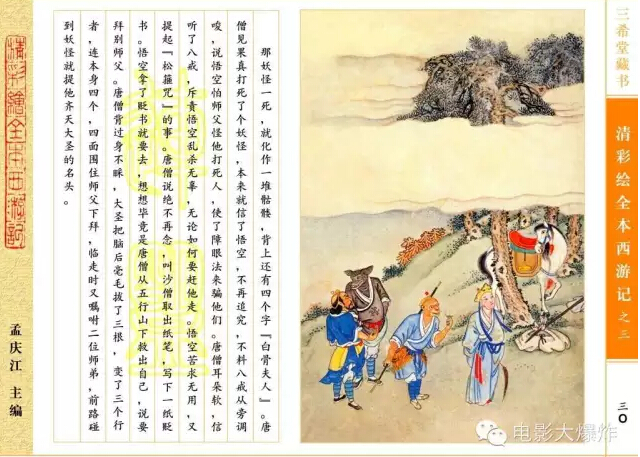 三希堂藏书
清彩绘全本西游记 之三
三〇
那妖怪一死，就化作一堆骷髅，背上还有四个字『白骨夫人』。唐
僧见果真打死了个妖怪，本来就信了悟空，不再追究，不料八戒从旁调
唆，说悟空怕师父怪他打死人，使了障眼法来骗他们。唐僧耳朵软，信
听了八戒，斥责悟空乱杀无辜，无论如何要赶他走。悟空苦求无用，又
提起『松箍咒』的事。唐僧说绝不再念，叫沙僧取出纸笔，写下一纸贬
书。悟空拿了贬书就要去，想想毕竟是唐僧从五行山下救出自己，说要
拜别师父。唐僧背过身不睬，大圣把脑后毫毛拔了三根，变了三个行
者，连本身四个，四面围住师父下拜，临走时又嘱咐二位师弟，前路碰
到妖怪就提他齐天大圣的名头。
清彩繪全本西游記
孟庆江 主编
电影大爆炸